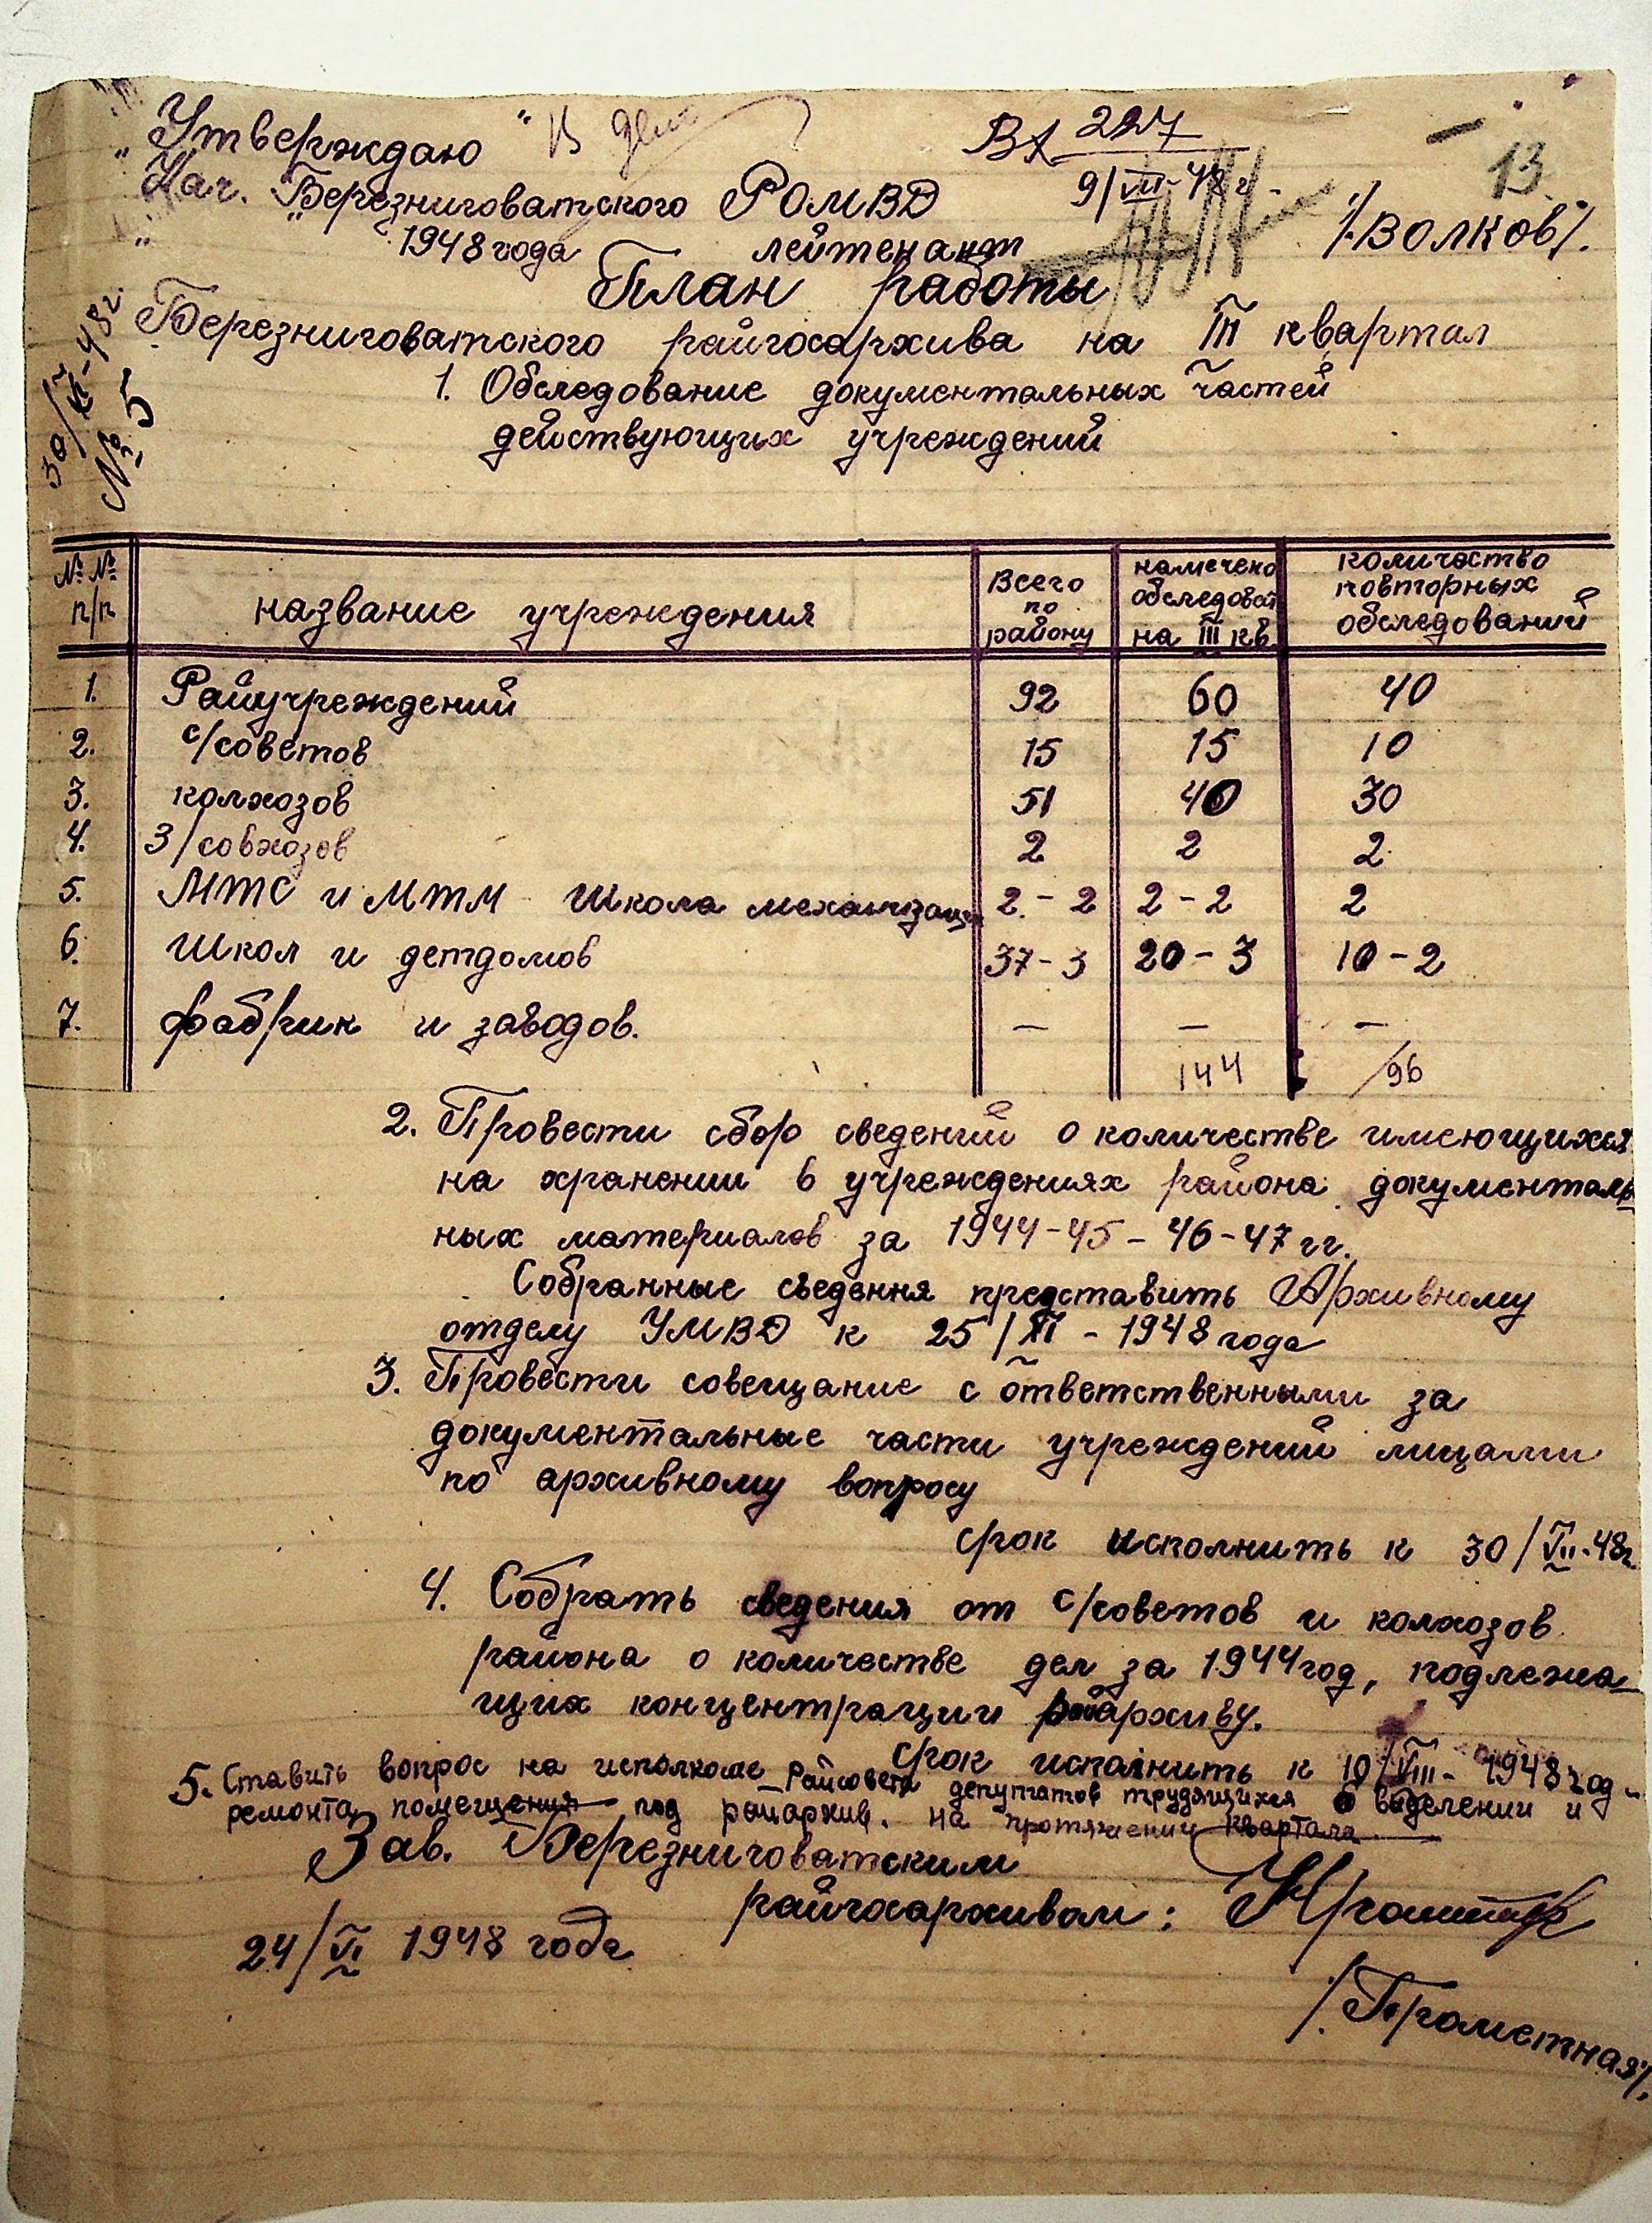 "Утверждаю" В дело
Вх 227
9/VII-48 г.
13
Нач. Березниговатского РОМВД
" " 1948 года лейтенант /Волков/.
30/VI-48 г.
№ 5
План работы
Березниговатского райгосархива на III квартал
1. Обследование документальных частей
действующих учреждений
№№ п/п | название учреждения | Всего по району | намечено обследоват на III кв | количество повторных обследований
1. Райучреждений 92 60 40
2. с/советов 15 15 10
3. колхозов 51 40 30
4. З/совхозов 2 2 2
5. МТС и МТМ школа механизации 2 - 2 2 - 2 2
6. Школ и детдомов 37 - 3 20 - 3 10 - 2
7. фабрик и заводов. — — —
144 /96
2. Провести сбор сведений о количестве имеющихся
на хранении в учреждениях района документаль
ных материалов за 1944-45-46-47 гг.
Собранные сведення представить Архивному
отделу УМВД к 25/XI - 1948 года
3. Провести совещание с ответственными за
документальные части учреждений лицами
по архивному вопросу
срок исполнить к 30/VII-48г.
4. Собрать сведения от с/советов и колхозов
района о количестве дел за 1944 год, подлежа-
щих концентрации райархиву.
срок исполнить к 10/VIII - 1948 год
5. Ставить вопрос на исполкоме Райсовета депутатов трудящихся о выделении и
ремонта помещения под райархив. на протяжении квартала
Зав. Березниговатским
райгосархивом:
24/VI 1948 года
/Прометная/.